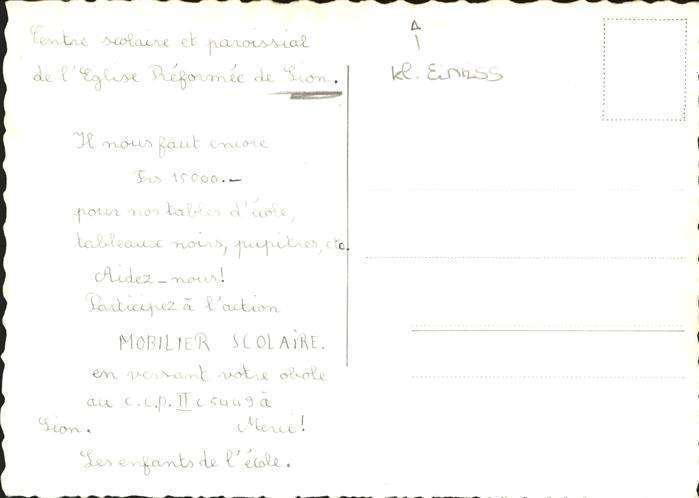 Centre scolaire et paroissial
de l'Eglise Réformée de Sion.
Il nous faut encore
Frs 15000.-
pour nos tables d'école,
tableaux noirs, pupitres, etc.
Aidez-nous!
Participez à l'action
MOBILIER SCOLAIRE.
en versant votre obole
au c.c.p. II c 5449 à
Sion. Merci!
Les enfants de l'école.
kl.